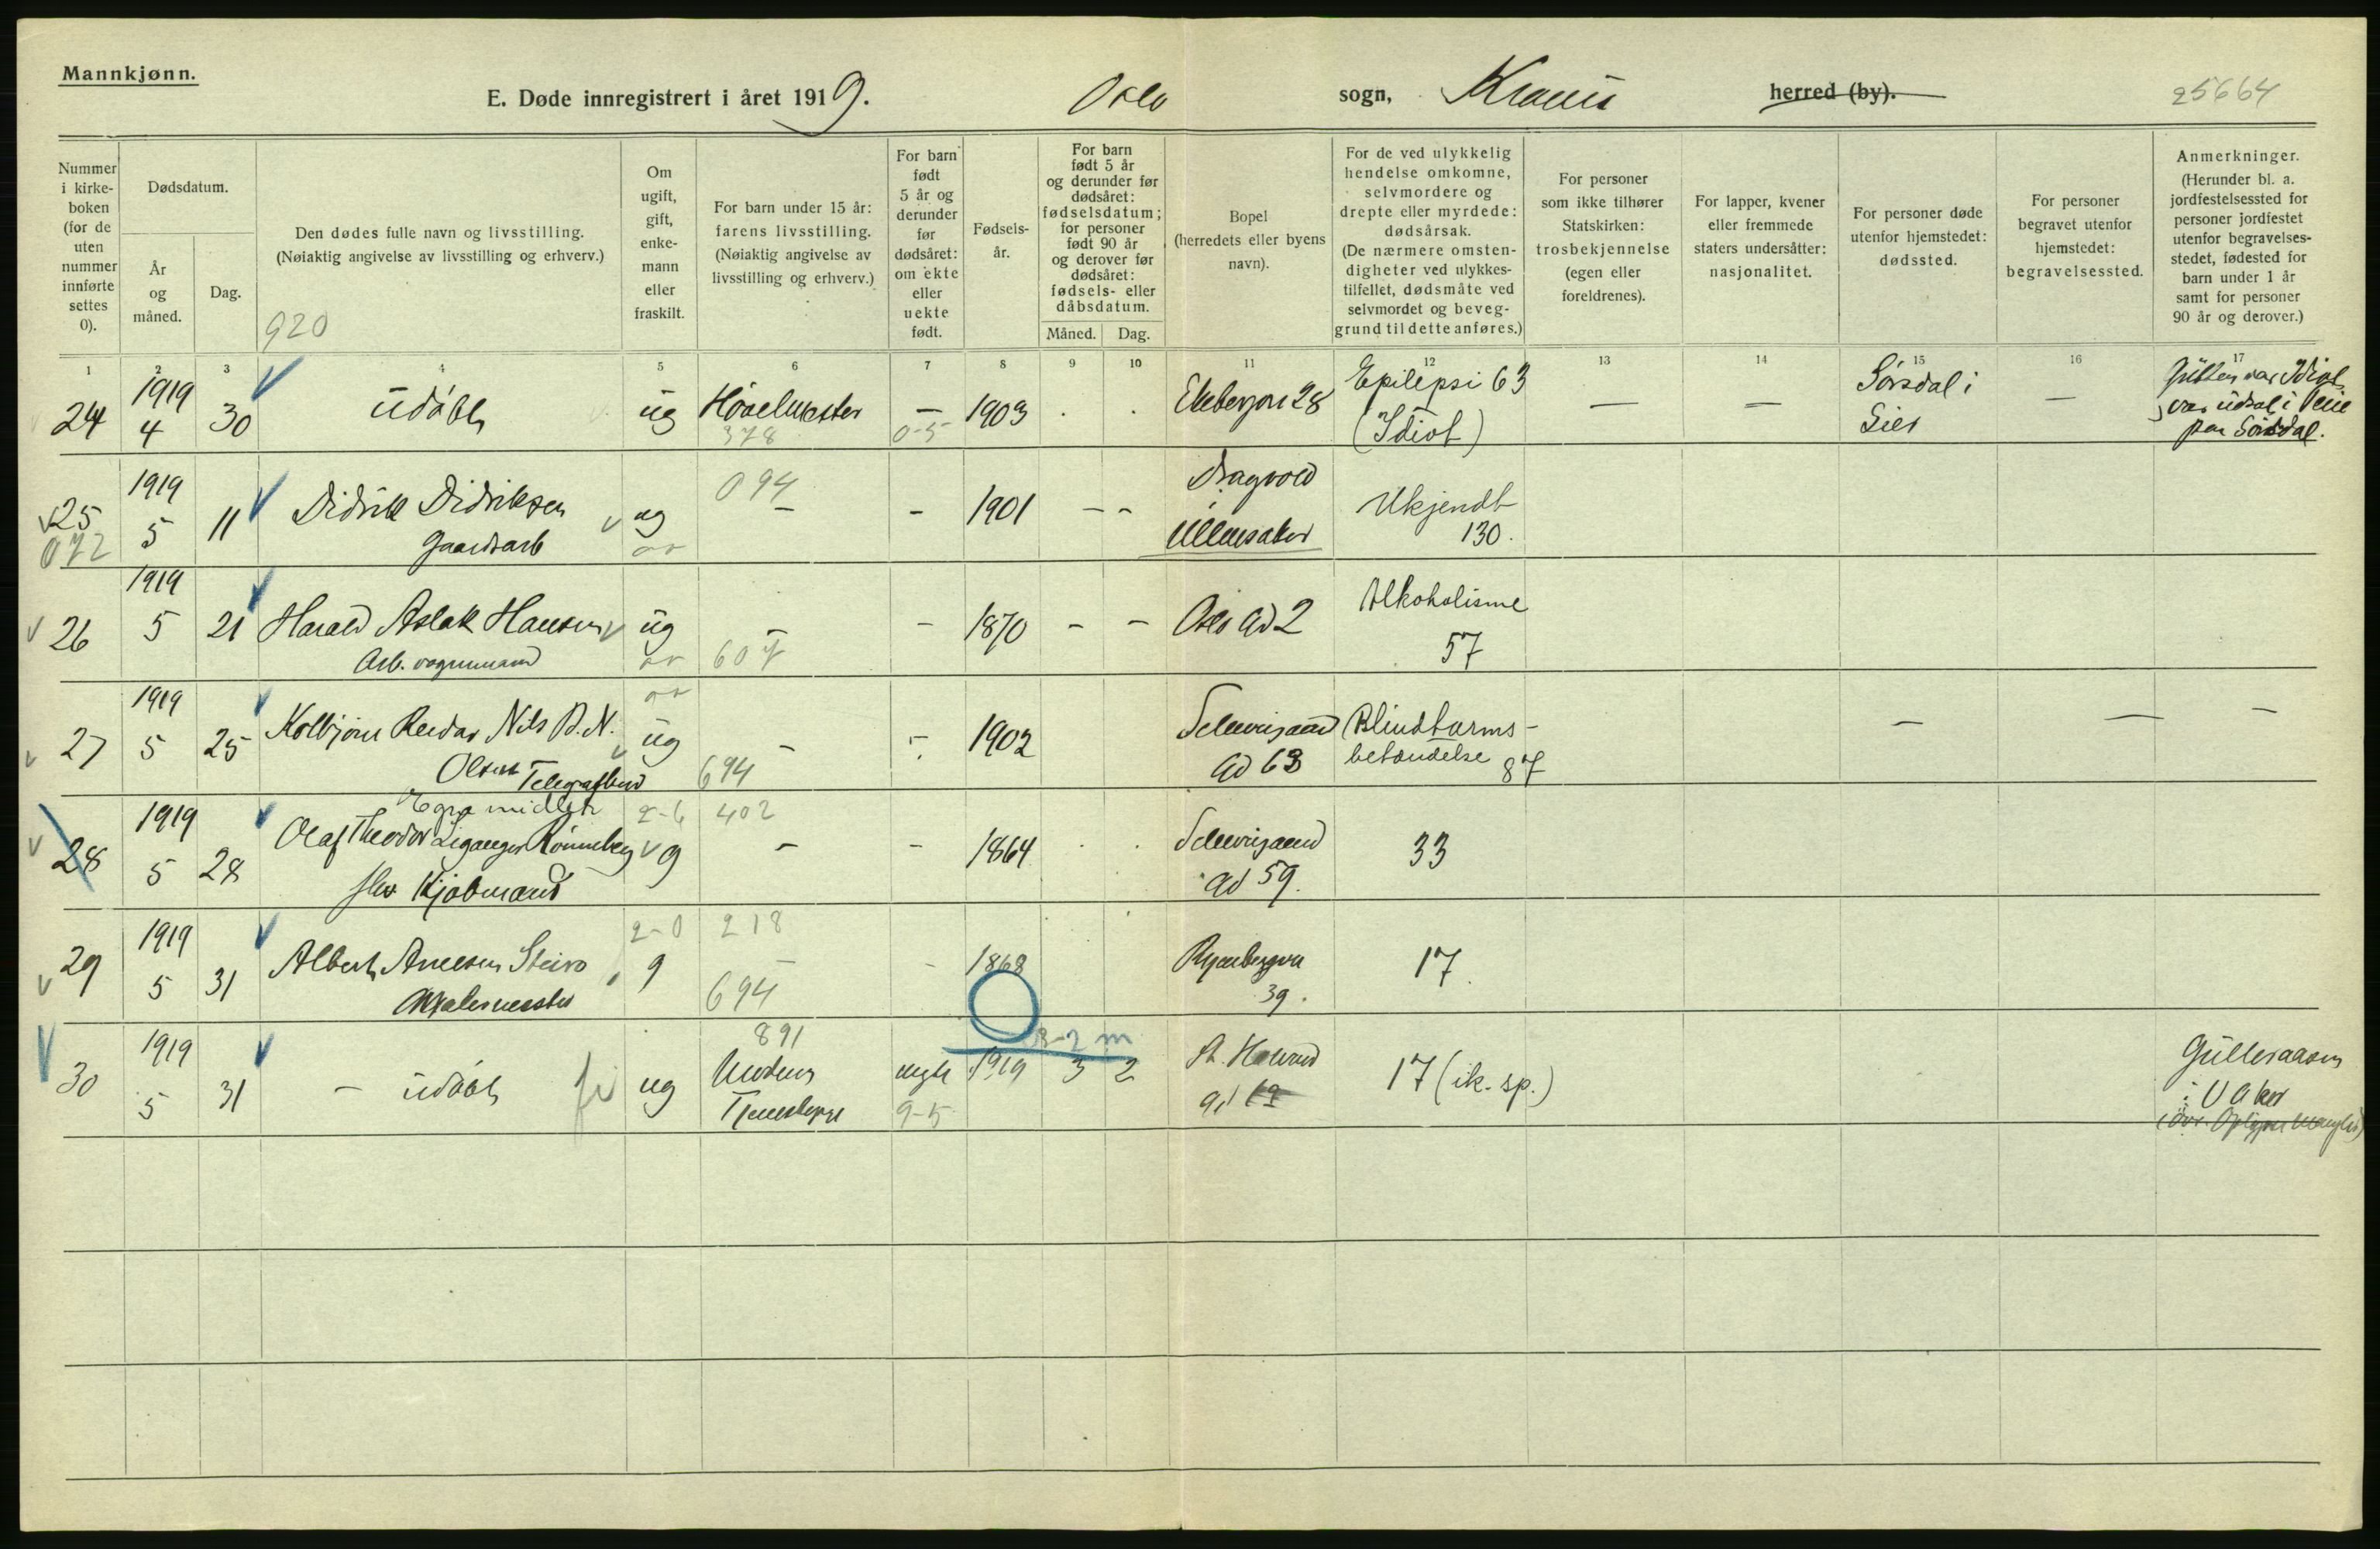 Mannkjønn.
E. Døde innregistrert i året 1919. Oslo sogn, herred (by). 25664
Nummer i kirkeboken (for de uten nummer innførte settes 0).
Dødsdatum.
År og måned.
Dag.
Den dødes fulle navn og livsstilling.
(Nøiaktig angivelse av livsstilling og erhverv.)
920
Om ugift, gift, enkemann eller fraskilt.
For barn under 15 år: farens livsstilling.
(Nøiaktig angivelse av livsstilling og erhverv.)
For barn født 5 år og derunder før dødsåret: om ekte eller uekte født.
Fødselsår.
For barn født 5 år og derunder før dødsåret: fødselsdatum; for personer født 90 år og derover før dødsåret: fødsels- eller dåbsdatum.
Måned. Dag.
Bopel (herredets eller byens navn).
For de ved ulykkelig hendelse omkomne, selvmordere og drepte eller myrdede: dødsårsak.
(De nærmere omstendigheter ved ulykkestilfellet, dødsmåte ved selvmordet og beveggrund til dette anføres.)
For personer som ikke tilhører Statskirken: trosbekjennelse (egen eller foreldrenes).
For lapper, kvener eller fremmede staters undersåtter: nasjonalitet.
For personer døde utenfor hjemstedet: dødssted.
For personer begravet utenfor hjemstedet: begravelsessted.
Anmerkninger.
(Herunder bl. a. jordfestelsessted for personer jordfestet utenfor begravelsesstedet, fødested for barn under 1 år samt for personer 90 år og derover.)
1 2 3 4 5 6 7 8 9 10 11 12 13 14 15 16 17
24 1919 4 30 udøbt ug 378 – 0-5 1903 Ekebergvn 28 Epilepsi 63 (Idiot) – – Sørsdal i Lier – Gutten var Idiot, var udsat i Pleie paa Sørsdal.
25 072 1919 5 11 Didrik Didriksen Gaardsarb ug 094 – – 1901 – – Dragvold i Ullensaker Ukjendt 130.
26 1919 5 21 Harald Aslak Hansen Arb. vognmand ug – 607 – 1870 – – Oslo Gd 2 Alkoholisme 57
27 1919 5 25 Kolbjørn Reidar Nils B. N. Olsen Telegrafbud ug – 694 – 1902 Gd 63 Blindtarmsbetændelse 87 – – –
28 1919 5 28 Egne midler Olaf Theodor Rønneberg Kjøbmand 2-6 g 402 – – 1864 Gd 59. 33
29 1919 5 31 Albert Arnesen Steiro Malermester 2-0 g 218 – 694 – 1868 Ryenbergvn 39. 17.
30 1919 5 31 – udøbt ug 891 Moderen uegte 9-5 1919 3 2 2 m St. Halvard Gd 17 (ik. sp.) Gulleraasen i V Aker